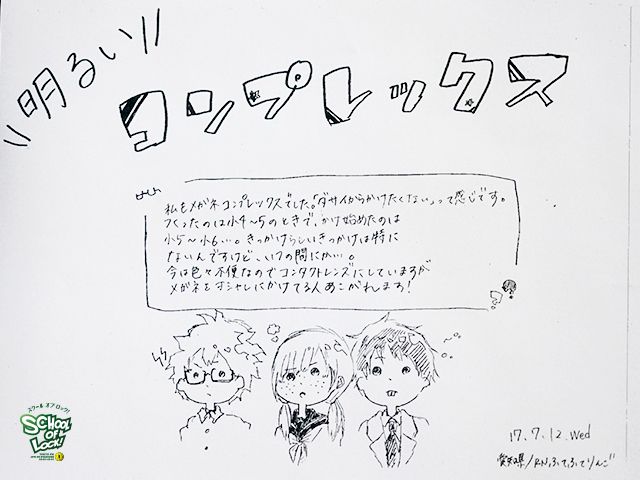 明るい
コンプレックス
私もメガネコンプレックスでした。「ダサイからかけたくない」って感じです。
つくったのは小4～5のときで、かけ始めたのは
小5～小6…。きっかけらしいきっかけは特に
ないんですけど、いつの間にか…。
今は色々不便なのでコンタクトレンズにしていますが
メガネをオシャレにかけてる人あこがれます!
スクール オブ ロック!
SCHOOL
OF
LOCK!
17.7.12.Wed
愛知県/RN.ふてふてりんご